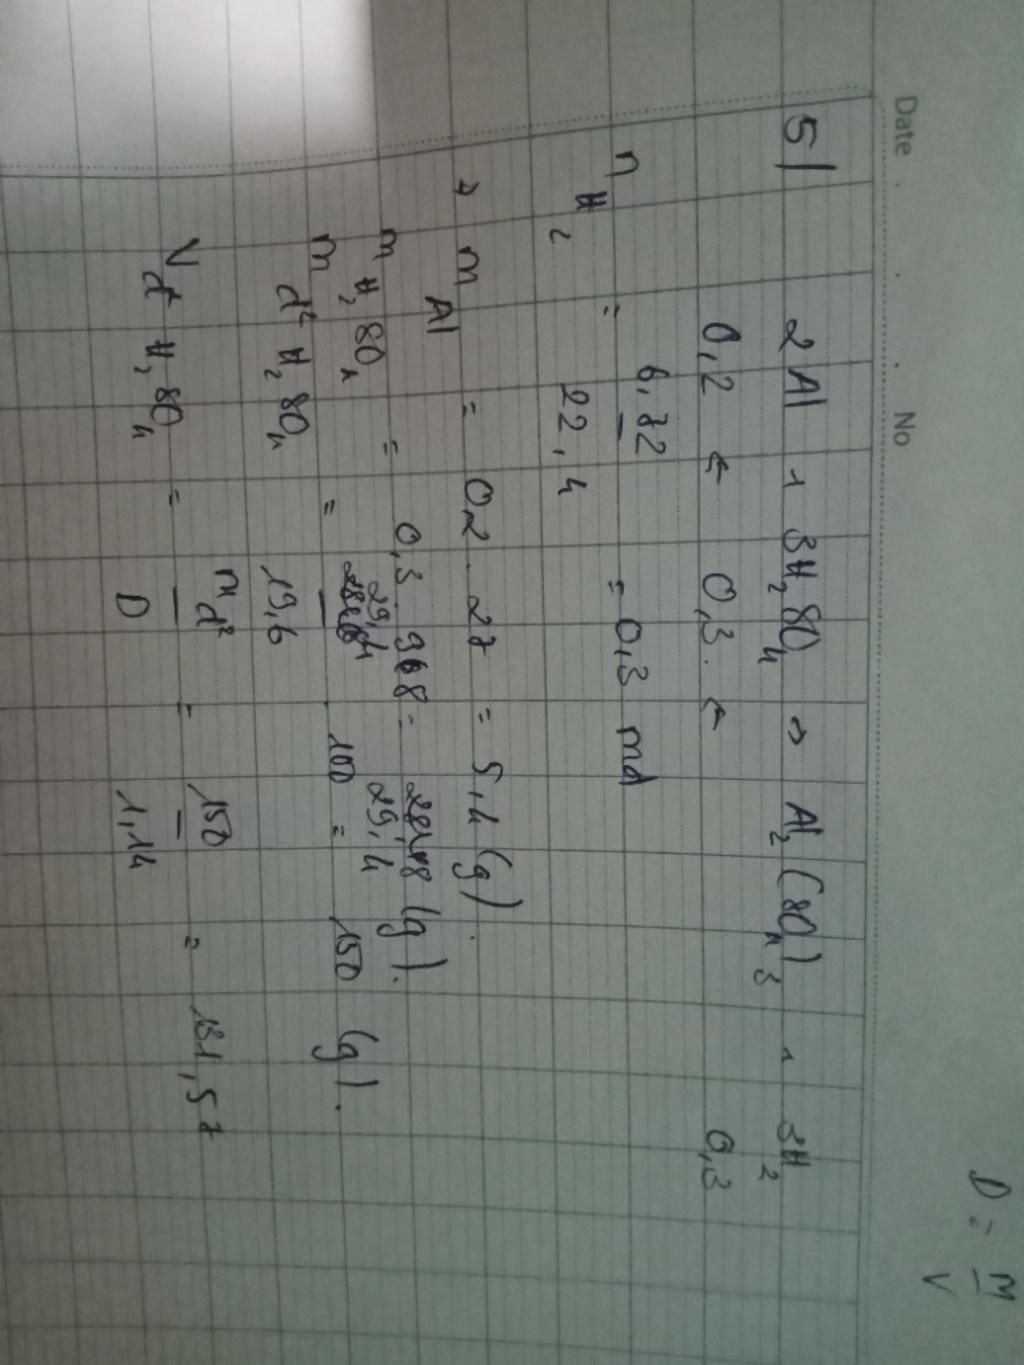 Date . . . No
D = M/V
5/ 2Al + 3H₂SO₄ → Al₂(SO₄)₃ + 3H₂
0,2 ← 0,3 ← 0,3
n H₂ = 6,72/22,4 = 0,3 mol
→ m Al = 0,2 . 27 = 5,4 (g).
m H₂SO₄ = 0,3 . 98 = 29,4 (g).
m d² H₂SO₄ = 29,4/19,6 . 100 = 150 (g).
V d² H₂SO₄ = m d²/D = 150/1,14 = 131,57